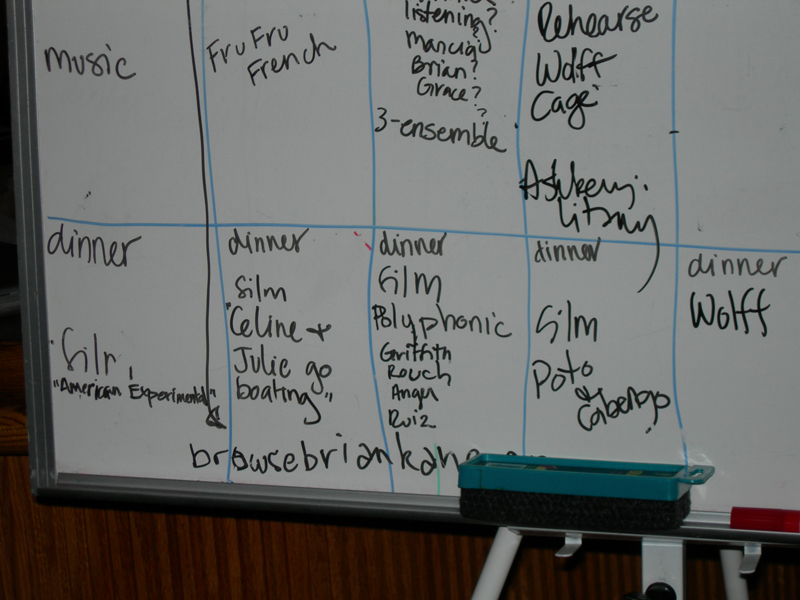 music
Fru Fru
French
listening?
Brian?
Grace?
?
3-ensemble
Rehearse
Wolff
Cage
Ashbery:
Litany
dinner
film
"American Experimental"
dinner
film
"Celine +
Julie go
boating"
dinner
film
Polyphonic
Griffith
Rouch
Anger
Ruiz
dinner
film
Poto
&
Cabengo
dinner
Wolff
browsebriankane